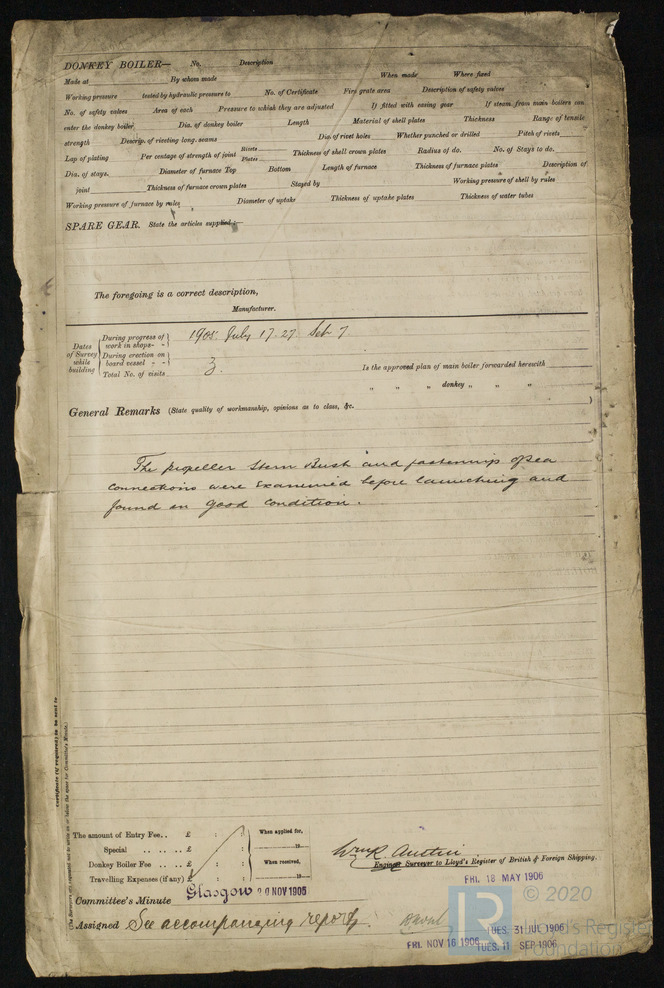 DONKEY BOILER— No. Description
Made at By whom made When made Where fixed
Working pressure tested by hydraulic pressure to No. of Certificate Fire grate area Description of safety valves
No. of safety valves Area of each Pressure to which they are adjusted If fitted with easing gear If steam from main boilers can
enter the donkey boiler Dia. of donkey boiler Length Material of shell plates Thickness Range of tensile
strength Descrip. of riveting long. seams Dia. of rivet holes Whether punched or drilled Pitch of rivets
Lap of plating Per centage of strength of joint Rivets Plates Thickness of shell crown plates Radius of do. No. of Stays to do.
Dia. of stays. Diameter of furnace Top Bottom Length of furnace Thickness of furnace plates Description of
joint Thickness of furnace crown plates Stayed by Working pressure of shell by rules
Working pressure of furnace by rules Diameter of uptake Thickness of uptake plates Thickness of water tubes
SPARE GEAR. State the articles supplied:—
The foregoing is a correct description,
Manufacturer.
Dates of Survey while building
During progress of work in shops - - 1905 July 17. 27. Sep 7
During erection on board vessel - - 3.
Total No. of visits
Is the approved plan of main boiler forwarded herewith
" " " donkey " " "
General Remarks (State quality of workmanship, opinions as to class, &c.
The propeller Stern Bush and fastenings of sea
connections were examined before launching and
found in good condition.
Certificate (if required) to be sent to
(The Surveyors are requested not to write on or below the space for Committee's Minute.)
The amount of Entry Fee.. £ : : When applied for,
Special .. .. .. £ : : 19
Donkey Boiler Fee .. .. £ : : When received,
Travelling Expenses (if any) £ : : 19
Wm R. Austin
Engineer Surveyor to Lloyd's Register of British & Foreign Shipping.
Committee's Minute Glasgow 20 NOV 1905
FRI. 18 MAY 1906
Assigned See accompanying report.
TUES. 31 JUL 1906
FRI. NOV 16 1906
TUES. 11 SEP 1906
LR
© 2020
Lloyd's Register
Foundation